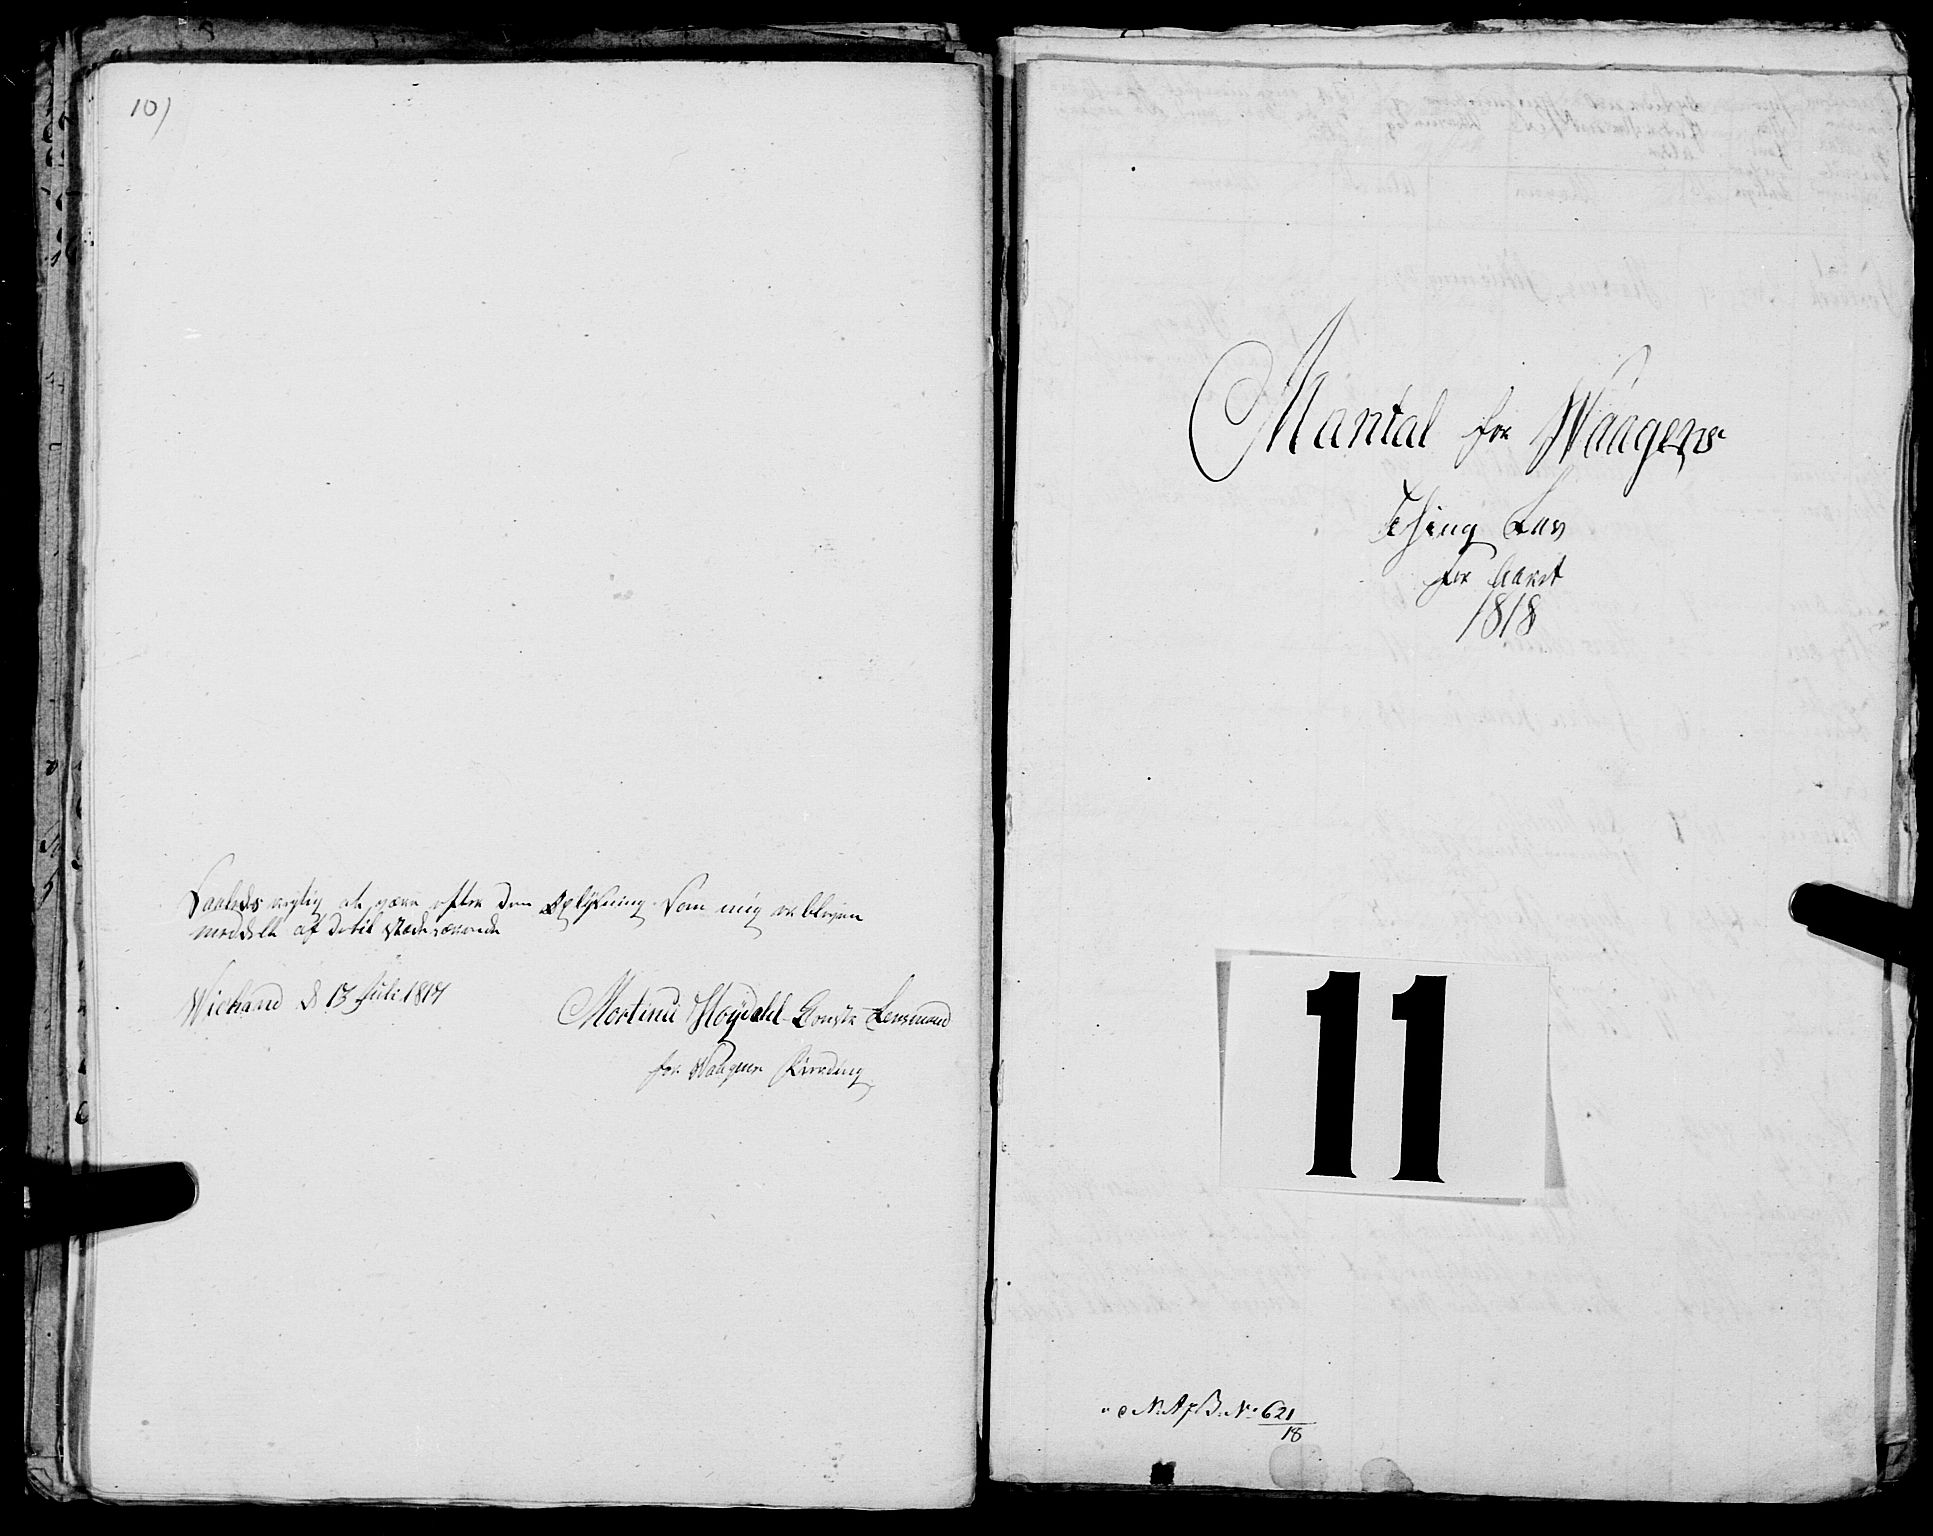 10)
Saaledes rigtig at være efter den Oplysning som mig er bleven
meddelt af de til stede værende
Wichand d 13 Juli 1817
Mortinus Høydahl Const: Lensmand
for Waagen
Mantal for Waagens
Thing Lav
for Aaret
1818
11
No 621/18